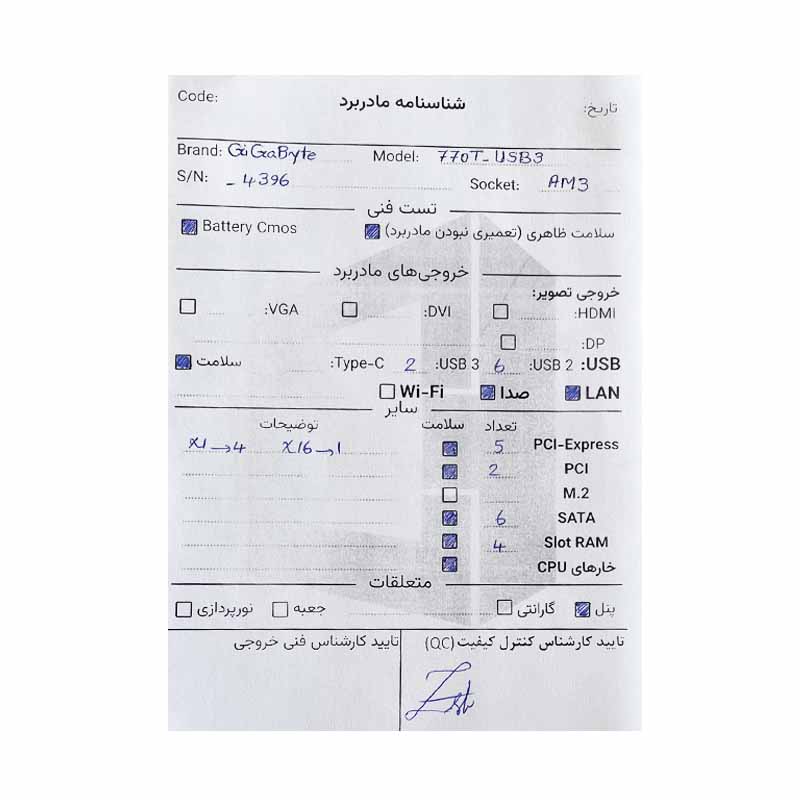 Code: شناسنامه مادربرد تاریخ:
Brand: GiGaByte Model: 770T-USB3
S/N: -4396 Socket: AM3
تست فنی
سلامت ظاهری (تعمیری نبودن مادربرد) Battery Cmos
خروجی‌های مادربرد
خروجی تصویر:
HDMI: DVI: VGA:
DP:
USB: USB 2: 6 USB 3: 2 Type-C: سلامت
LAN صدا Wi-Fi
سایر
تعداد سلامت توضیحات
PCI-Express 5 X16→1 X1→4
PCI 2
M.2
SATA 6
Slot RAM 4
خارهای CPU
متعلقات
پنل گارانتی جعبه نورپردازی
تایید کارشناس کنترل کیفیت(QC) تایید کارشناس فنی خروجی